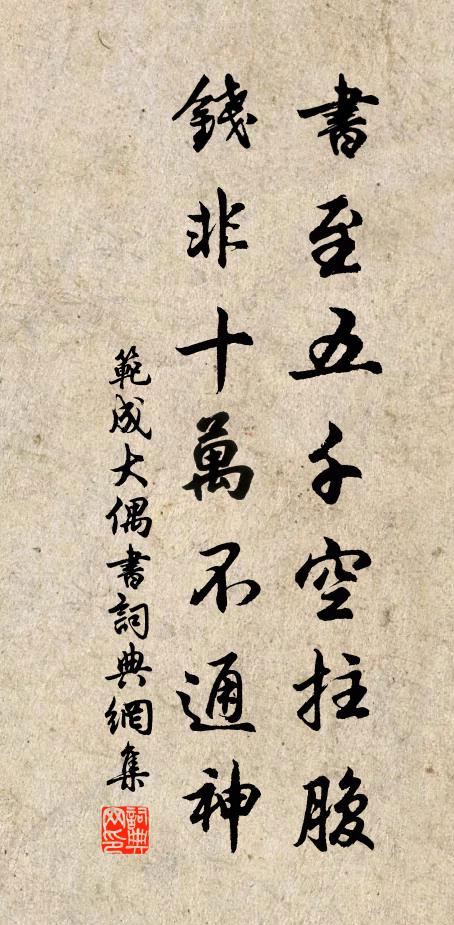 書至五千空拄腹
錢非十萬不通神
範成大偶書詞典網集
詞典
网印